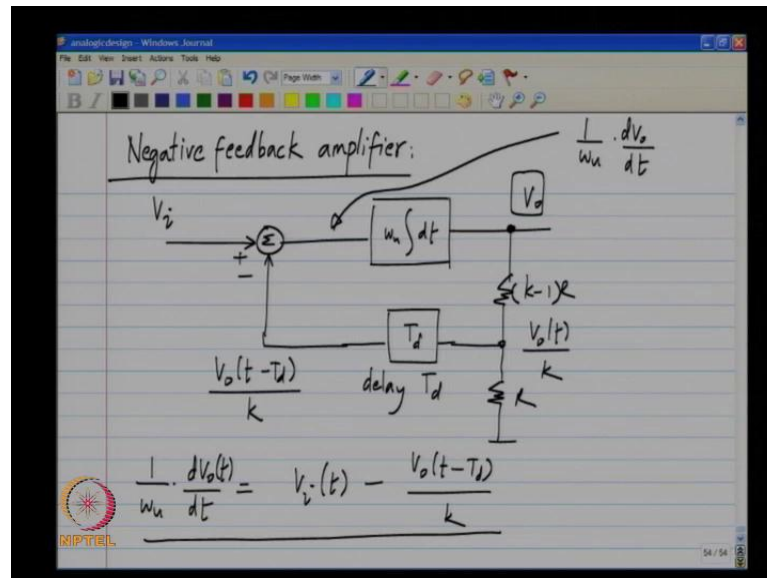 analogicdesign - Windows Journal
File Edit View Insert Actions Tools Help
Page Width
B I
Negative feedback amplifier:
1/ωu · dVo/dt
Vi
Σ
+
−
ωu ∫ dt
Vo
(k-1)R
Td
delay Td
Vo(t)/k
R
Vo(t - Td)/k
1/ωu · dVo(t)/dt = Vi(t) − Vo(t-Td)/k
NPTEL
54 / 54